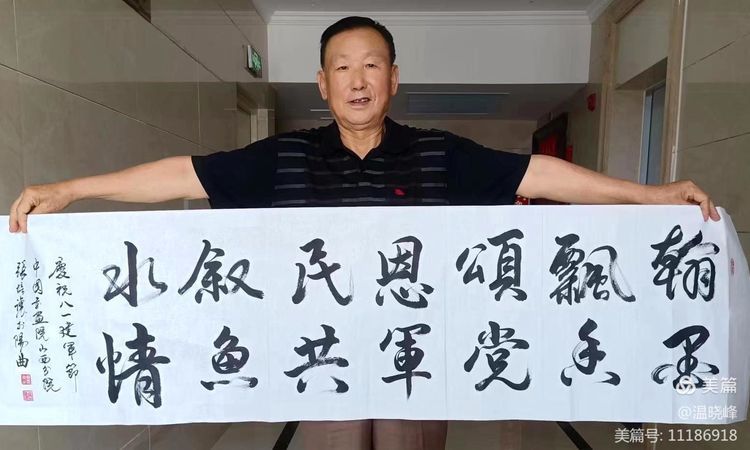 翰墨
飄香
頌党
恩軍
民共
叙魚
水情
慶祝八一建軍節
中国书画院山西分院
張 於陽曲
美篇
@温晓峰
美篇号: 11186918